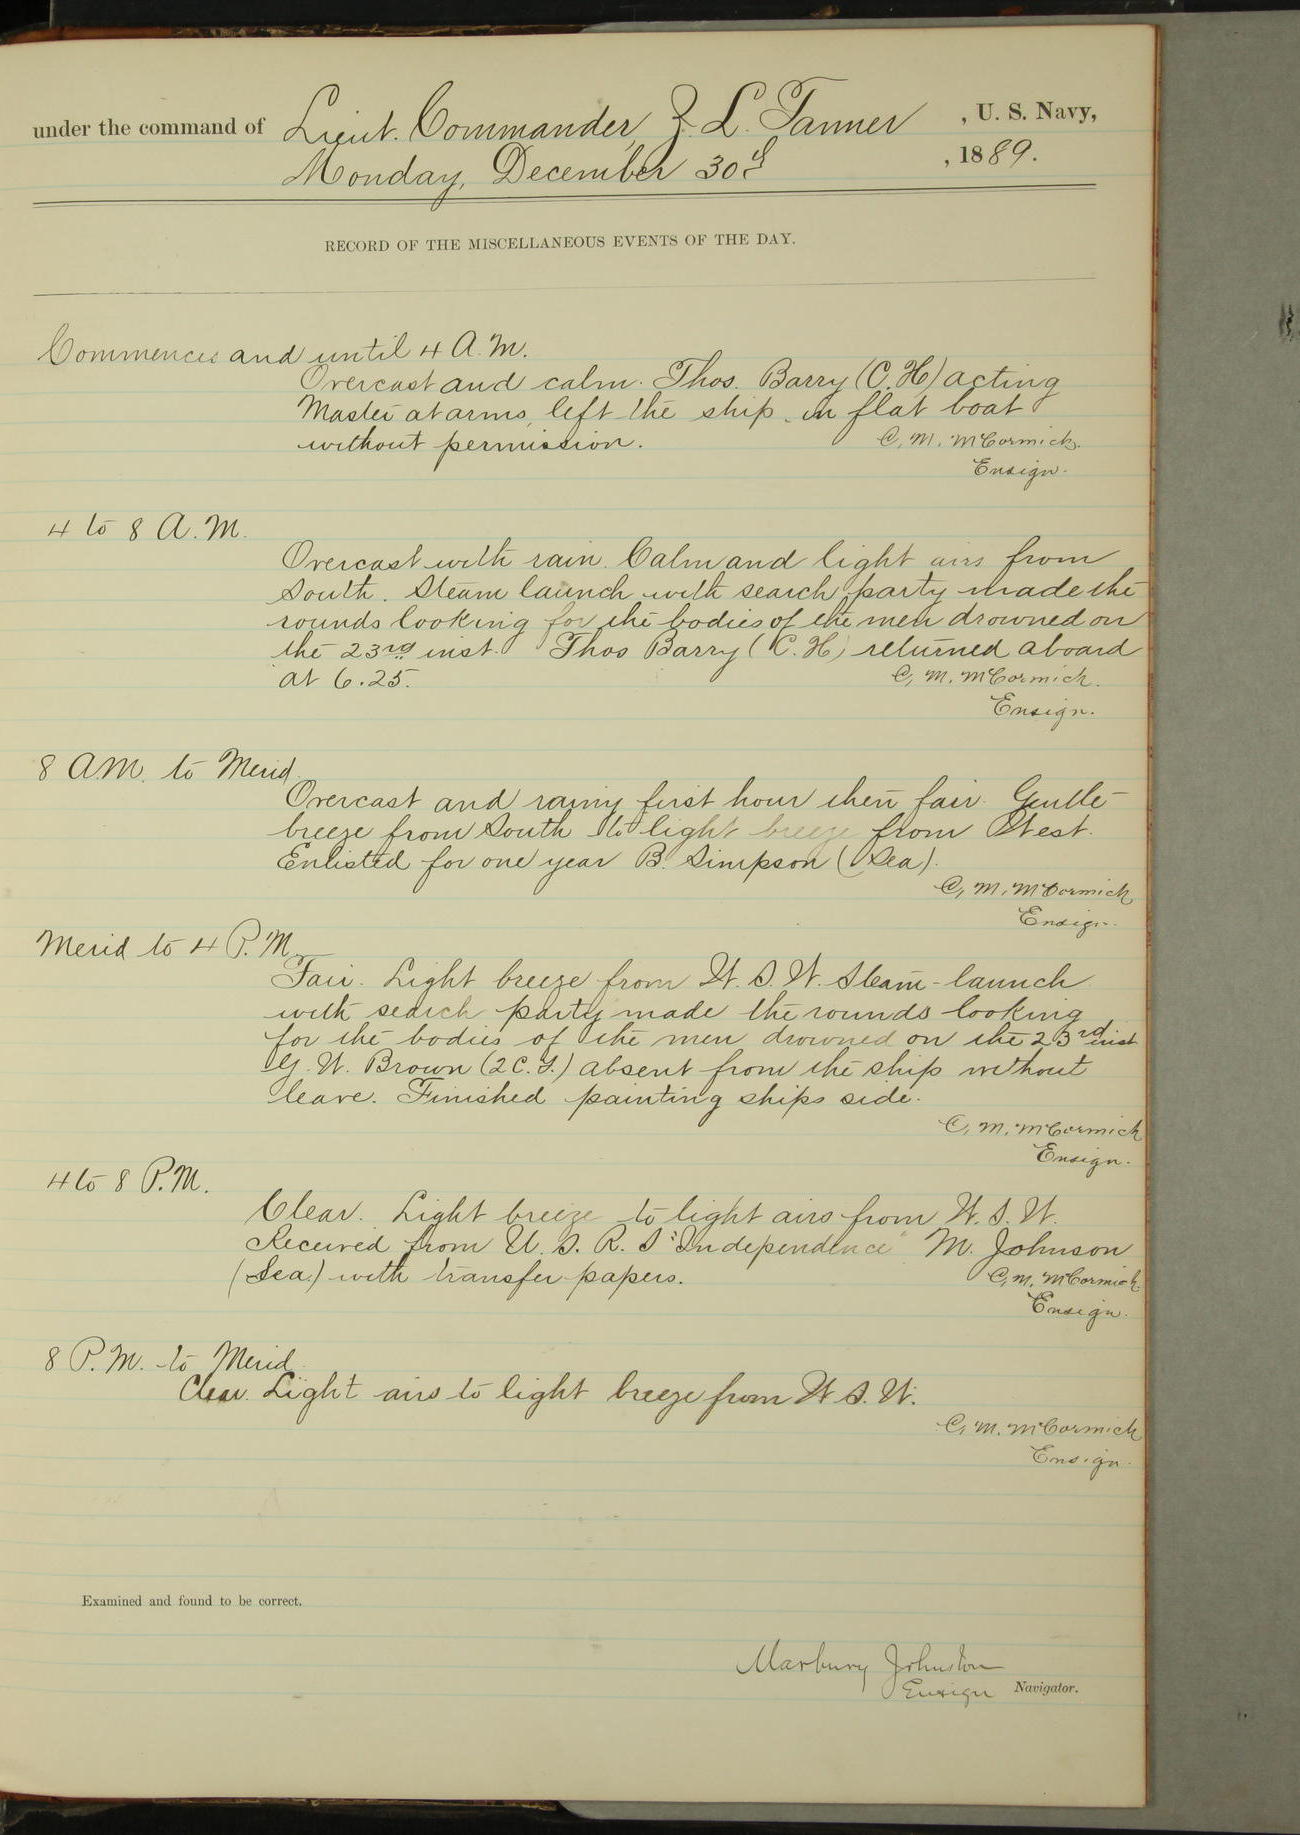 under the command of Lieut. Commander, Z. L. Tanner, U. S. Navy,
Monday, December 30th, 1889.
RECORD OF THE MISCELLANEOUS EVENTS OF THE DAY.
Commences and until 4 A.M.
Overcast and calm. Thos. Barry (C. H) acting
Master at arms, left the ship in flat boat
without permission. C. M. McCormick.
Ensign.
4 to 8 A.M.
Overcast with rain. Calm and light airs from
South. Steam launch with search party made the
rounds looking for the bodies of the men drowned on
the 23rd inst. Thos Barry (C. H) returned aboard
at 6.25. C. M. McCormick.
Ensign.
8 AM. to Merid.
Overcast and rainy first hour then fair. Gentle
breeze from South to light breeze from West.
Enlisted for one year B. Simpson (Sea).
C. M. McCormick
Ensign.
Merid to 4 P.M.
Fair. Light breeze from W. S. W. Steam-launch
with search party made the rounds looking
for the bodies of the men drowned on the 23rd inst
G. W. Brown (2 C. F.) absent from the ship without
leave. Finished painting ships side.
C. M. McCormick
Ensign.
4 to 8 P.M.
Clear. Light breeze to light airs from W. S. W.
Received from U. S. R. S "Independence" M. Johnson
(Sea.) with transfer papers. C. M. McCormick.
Ensign.
8 P.M. to Merid.
Clear. Light airs to light breeze from W S. W.
C. M. McCormick
Ensign.
Examined and found to be correct.
Marbury Johnston
Ensign Navigator.